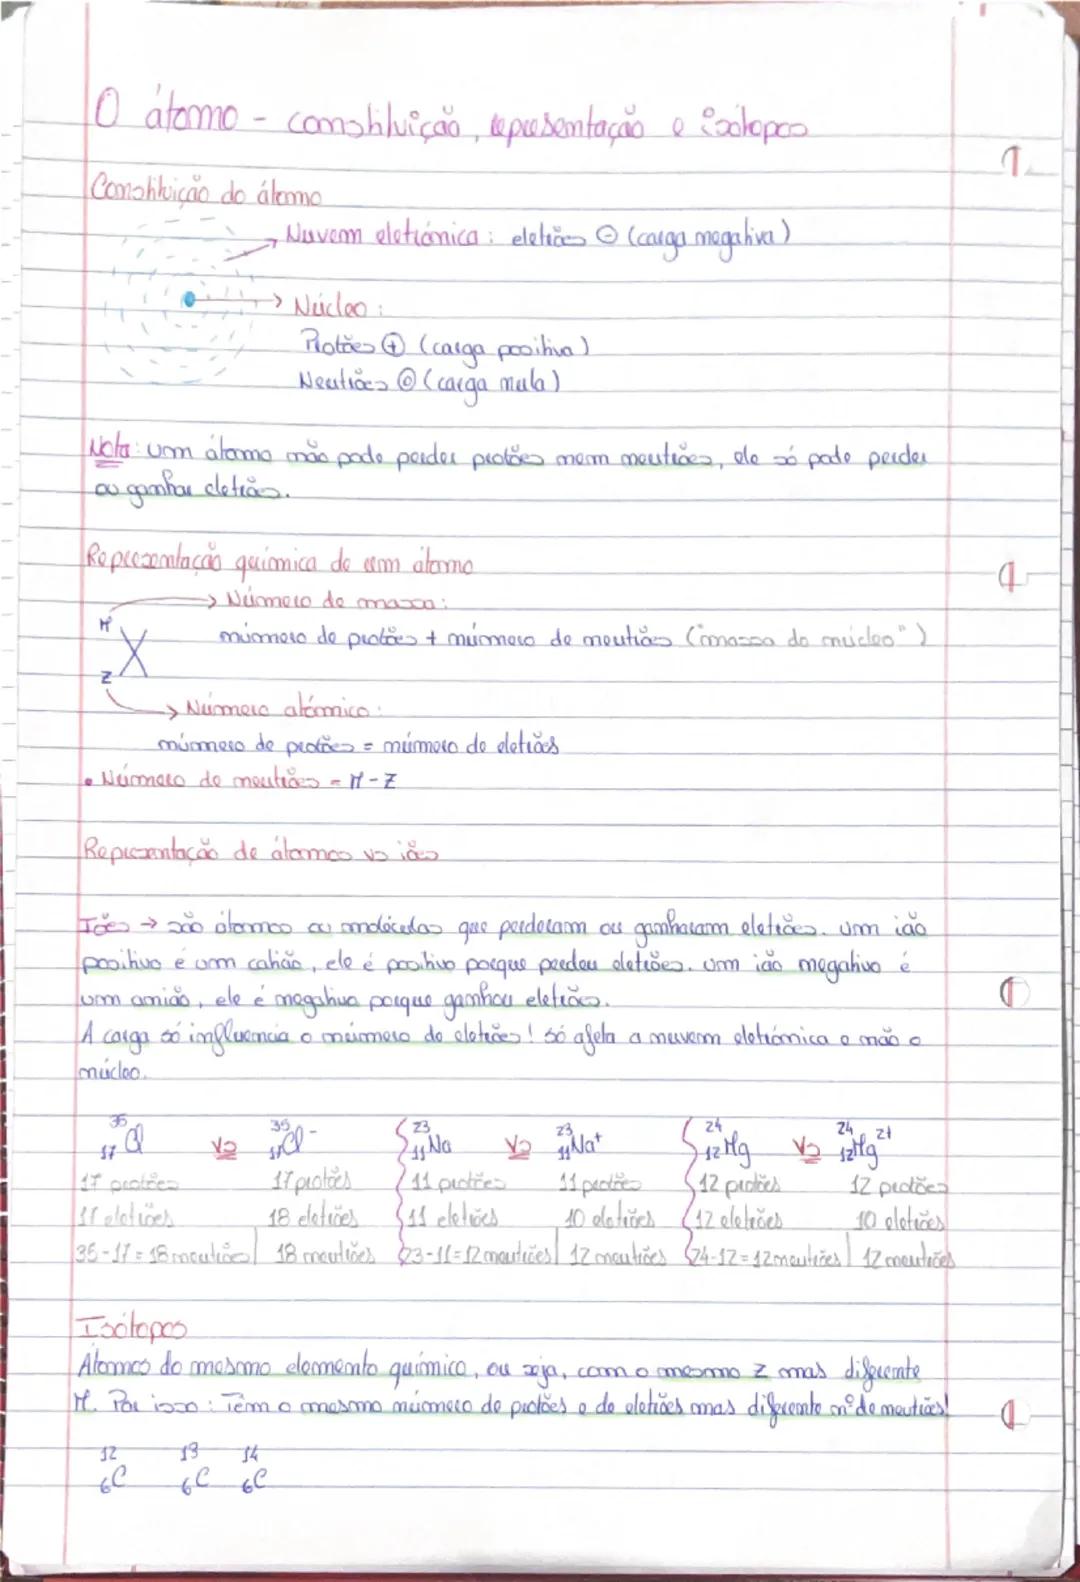 O átomo - constituição, representação e isótopos
Constituição do átomo
→ Nuvem eletrónica: eletrões ⊖ (carga negativa)
→ Núcleo:
Protões ⊕ (carga positiva)
Neutrões ⓪ (carga nula)
Nota: um átomo não pode perder protões nem neutrões, ele só pode perder
ou ganhar eletrões.
Representação química de um átomo
→ Número de massa:
M
número de protões + número de neutrões ("massa do núcleo")
X
Z
→ Número atómico:
número de protões = número de eletrões
• Número de neutrões = M - Z
Representação de átomos vs iões
Iões → são átomos ou moléculas que perderam ou ganharam eletrões. um ião
positivo é um catião, ele é positivo porque perdeu eletrões. um ião negativo é
um anião, ele é negativo porque ganhou eletrões.
A carga só influencia o número de eletrões! só afeta a nuvem eletrónica e não o
núcleo.
35 17 Cl vs 35 17 Cl - 23 11 Na vs 23 11 Na+ 24 12 Mg vs 24 12 Mg 2+
17 protões 17 protões 11 protões 11 protões 12 protões 12 protões
17 eletrões 18 eletrões 11 eletrões 10 eletrões 12 eletrões 10 eletrões
35-17=18 neutrões 18 neutrões 23-11=12 neutrões 12 neutrões 24-12=12 neutrões 12 neutrões
Isótopos
Átomos do mesmo elemento químico, ou seja, com o mesmo Z mas diferente
M. Por isso: Têm o mesmo número de protões e de eletrões mas diferente nº de neutrões!
12 13 14
6C 6C 6C